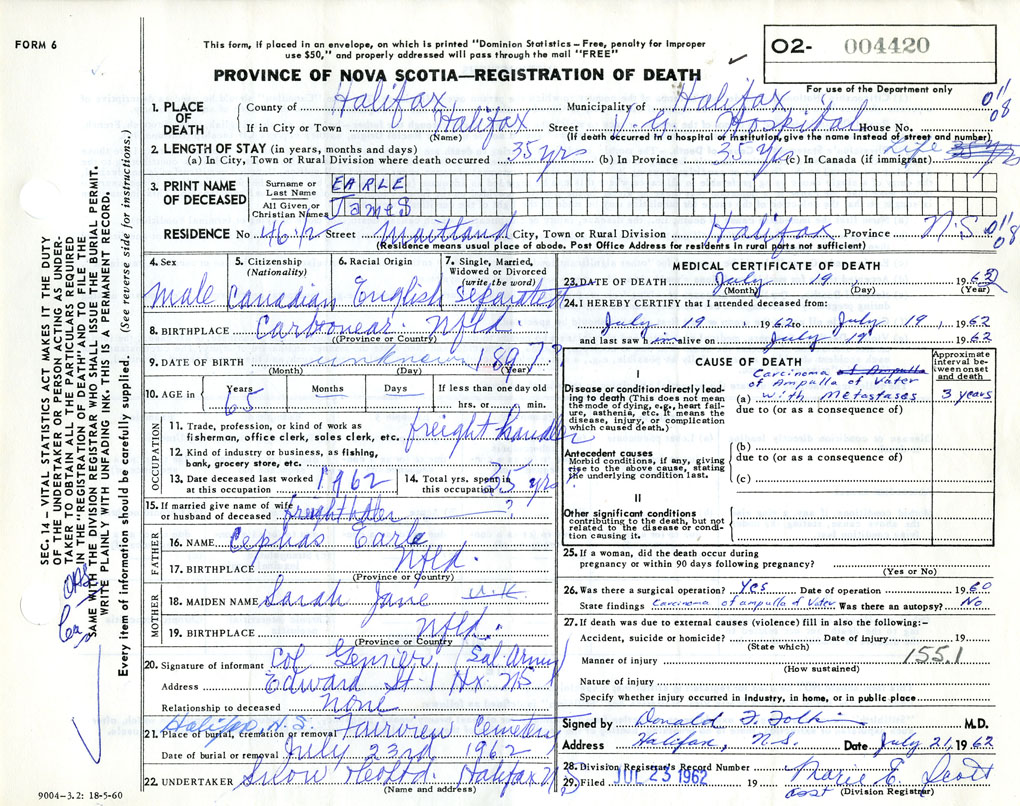 FORM 6
This form, if placed in an envelope, on which is printed "Dominion Statistics - Free, penalty for improper
use $50," and properly addressed will pass through the mail "FREE"
O2- 004420
For use of the Department only
PROVINCE OF NOVA SCOTIA—REGISTRATION OF DEATH
1. PLACE OF DEATH
County of Halifax Municipality of Halifax
If in City or Town Halifax Street V.G. Hospital House No.
(Name) (If death occurred in a hospital or institution, give the name instead of street and number)
011
08
2. LENGTH OF STAY (in years, months and days)
(a) In City, Town or Rural Division where death occurred 35 yrs (b) In Province 35 yrs (c) In Canada (if immigrant) Life 35 yrs
3. PRINT NAME OF DECEASED
Surname or Last Name EARLE
All Given or Christian Names James
RESIDENCE No 46 1/2 Street Maitland City, Town or Rural Division Halifax Province N.S
011
08
(Residence means usual place of abode. Post Office Address for residents in rural parts not sufficient)
4. Sex male
5. Citizenship (Nationality) Canadian
6. Racial Origin English
7. Single, Married, Widowed or Divorced (write the word) Separated
8. BIRTHPLACE Carbonear. Nfld.
(Province or Country)
9. DATE OF BIRTH unknown 1897 ?
(Month) (Day) (Year)
10. AGE in Years 65 Months Days If less than one day old
hrs. or min.
OCCUPATION
11. Trade, profession, or kind of work as
fisherman, office clerk, sales clerk, etc. freight handler
12. Kind of industry or business, as fishing,
bank, grocery store, etc.
13. Date deceased last worked at this occupation 1962
14. Total yrs. spent in this occupation 35 yrs
15. If married give name of wife
or husband of deceased ?
FATHER
16. NAME Cephas Earle
17. BIRTHPLACE Nfld.
(Province or Country)
MOTHER
18. MAIDEN NAME Sarah Jane U.K
19. BIRTHPLACE Nfld.
(Province or Country)
20. Signature of informant Col (Sal. Army)
Address Edward St. Hx. NS
Relationship to deceased none
Halifax N.S.
21. Place of burial, cremation or removal Fairview Cemetery
Date of burial or removal July 23rd 1962
22. UNDERTAKER Snow & Co Ltd. Halifax N.S
(Name and address)
9004-3.2: 18-5-60
MEDICAL CERTIFICATE OF DEATH
23. DATE OF DEATH July 19, 1962
(Month) (Day) (Year)
24. I HEREBY CERTIFY that I attended deceased from:
July 19 1962 to July 19, 1962
and last saw him alive on July 19 1962
CAUSE OF DEATH
Approximate interval between onset and death
I
Disease or condition directly leading to death (This does not mean
the mode of dying, e.g., heart failure, asthenia, etc. It means the
disease, injury, or complication
which caused death.)
Carcinoma of Ampulla
of Ampulla of Vater
(a) with Metastases 3 years
due to (or as a consequence of)
Antecedent causes
Morbid conditions, if any, giving
rise to the above cause, stating
the underlying condition last.
(b)
due to (or as a consequence of)
(c)
II
Other significant conditions
contributing to the death, but not
related to the disease or condition causing it.
25. If a woman, did the death occur during
pregnancy or within 90 days following pregnancy?
(Yes or No)
26. Was there a surgical operation? Yes Date of operation 1960
State findings Carcinoma of ampulla of Vater Was there an autopsy? No
27. If death was due to external causes (violence) fill in also the following:-
Accident, suicide or homicide? Date of injury 19
(State which)
Manner of injury 155.1
(How sustained)
Nature of injury
Specify whether injury occurred in industry, in home, or in public place
Signed by Donald F. M.D.
Address Halifax, N.S. Date July 21, 1962
28. Division Registrar's Record Number
29. Filed JUL 23 1962 19 Marie E. Scott
asst (Division Registrar)
SEC. 14 - VITAL STATISTICS ACT MAKES IT THE DUTY
OF THE UNDERTAKER OR PERSON ACTING AS UNDERTAKER TO OBTAIN ALL THE PARTICULARS REQUIRED
IN THE "REGISTRATION OF DEATH" AND TO FILE THE
SAME WITH THE DIVISION REGISTRAR WHO SHALL ISSUE THE BURIAL PERMIT.
WRITE PLAINLY WITH UNFADING INK. THIS IS A PERMANENT RECORD.
Every item of information should be carefully supplied. (See reverse side for instructions.)